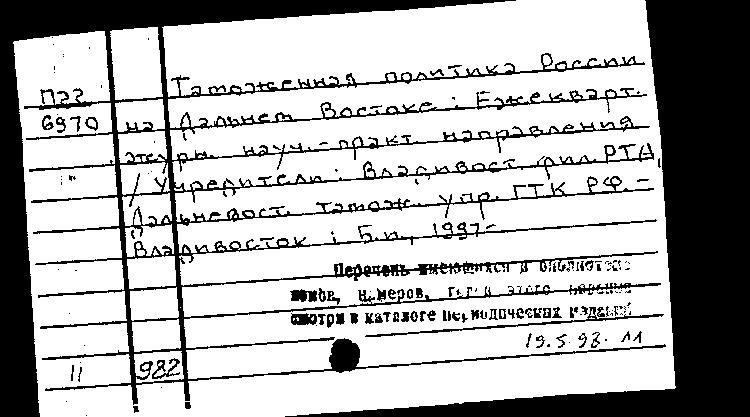 Таможенная политика России
П22
6970 на Дальнем Востоке : Ежекварт.
журн. науч.-практ. направления
/ Учредители: Владивост. фил. РТА,
Дальневост. тамож. упр. ГТК РФ. –
Владивосток : Б.и., 1997-
Перечень имеющихся в библиотеке
томов, номеров, год этого издания
смотри в каталоге периодических изданий
19.5.98. 11
11 982